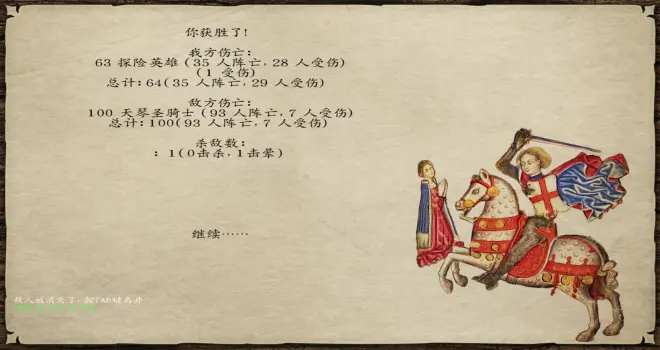 你获胜了!
我方伤亡:
63 探险英雄 (35 人阵亡, 28 人受伤)
(1 受伤)
总计: 64(35 人阵亡, 29 人受伤)
敌方伤亡:
100 天琴圣骑士 (93 人阵亡, 7 人受伤)
总计: 100(93 人阵亡, 7 人受伤)
杀敌数:
: 1(0击杀, 1击晕)
继续……
敌人被消灭了, 按TAB键离开